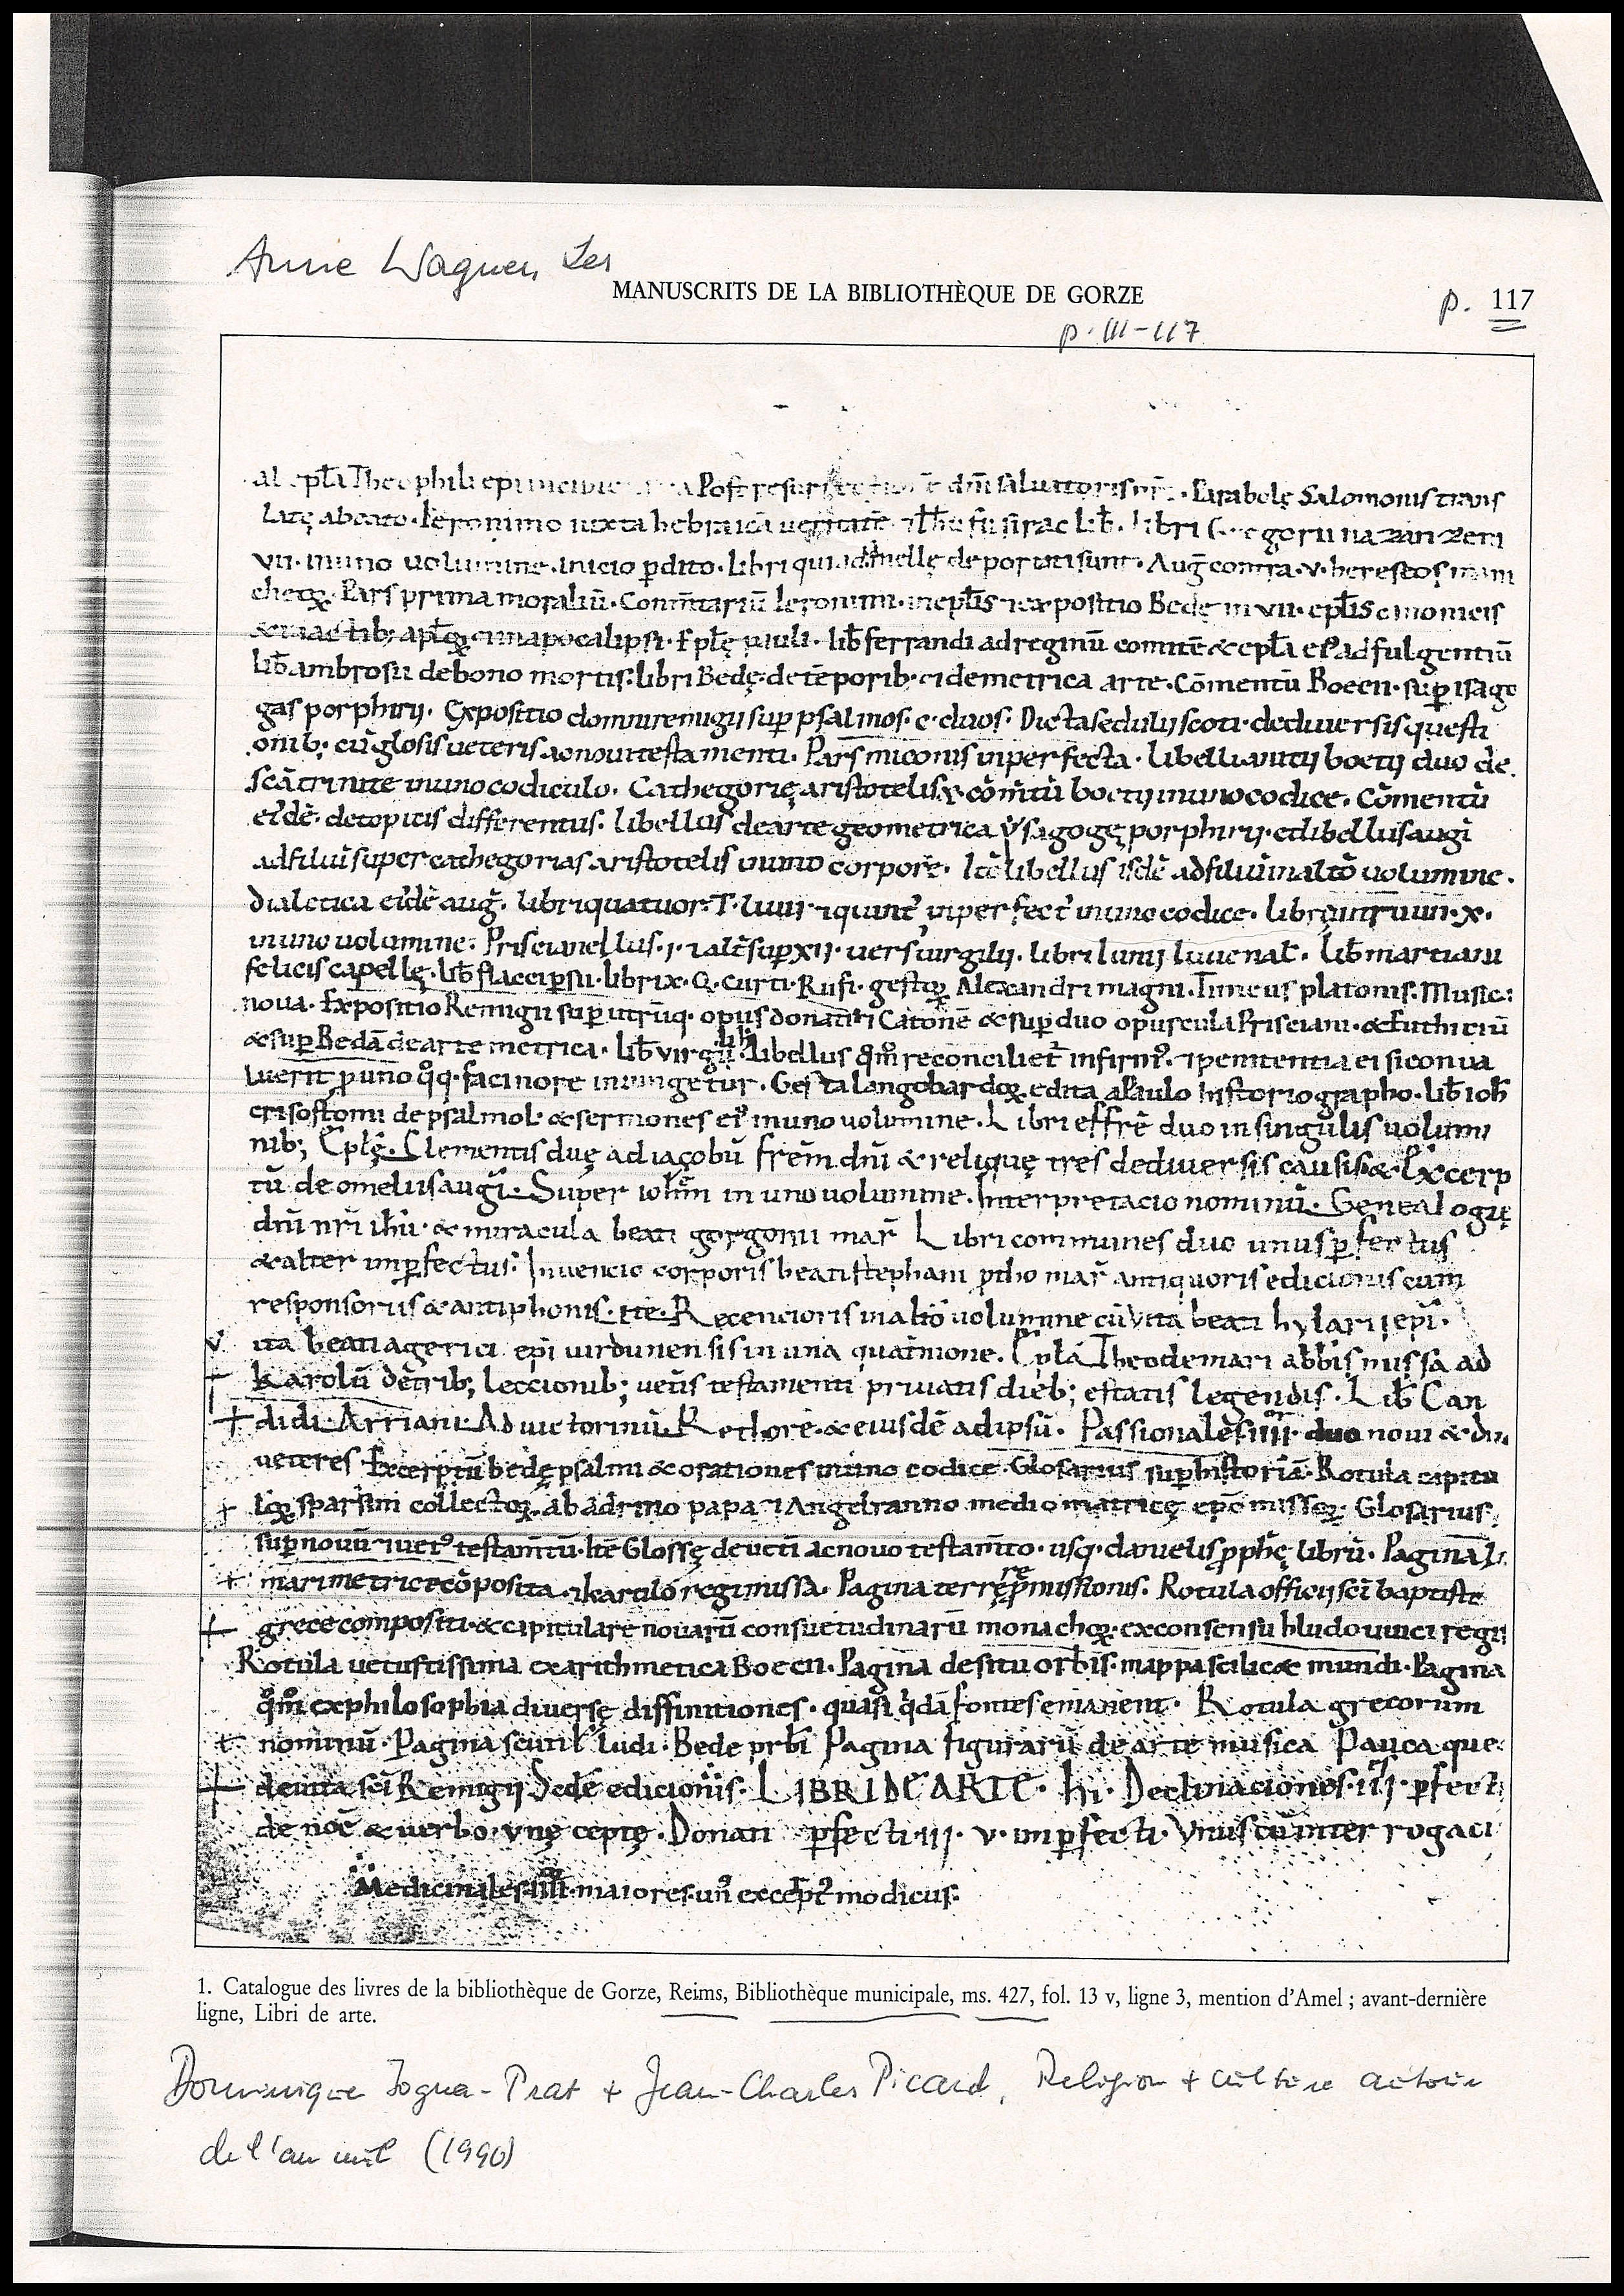 Anne Wagner, Les
MANUSCRITS DE LA BIBLIOTHÈQUE DE GORZE
p. 117
p. 111-117
epła Theophili epi Post dñi saluatoris Parabolę Salomonis trans
latę abeato Ieronimo iuxta hebraica libri nazanzeni
vii. inuno uolumine. inicio pdito. Libri qui deportati sunt. Aug̃ contra .v. hereseos mani
cheoꝝ. Pars prima moraliũ. Ieronimi expositio Bedę in vii. epłis canonicis
apocalipsi. Epłę pauli. lib̃ ferrandi ad reginũ comitẽ & epła ei᷒ ad fulgentiũ
lib̃ ambrosii debono mortis. libri Bedę de tẽporib᷒ demetrica arte. Cõmentũ Boecii. sup isago
gas porphirij. Expositio domni remigij sup psalmos .c. duos. Dicta sedulij scoti. de diuersis questi
onib; cũ glosis ueteris ac noui testamenti. Pars miconis inperfecta. libelli boetij duo de
scã trinite inuno codiculo. Cathegorię aristotelis & cõm̃tũ boetij inuno codice. Cõmentũ
eidẽ. detopicis differentiis. libellus dearte geometrica ysagogę porphirij. et libellus augi
ad filiũ super cathegorias aristotelis inuno corpore. Itẽ libellus isdẽ ad filiũ in altõ uolumine.
dialetica eidẽ aug̃. libri quatuor. T. Liuii inuno codice. .x.
inuno uolumine. Priscianellus .j. sup xij. uers uirgilij. libri Iunij Iuuenał. lib̃ martiani
felicis capellę. lib̃ flacci psii. libri x. Q. Curti. Rufi. gestoꝝ Alexandri magni. Timeus platonis. Music:
noua. Expositio Remigii sup utrũq᷒ opus donati & sup duo opuscula Prisciani. & Euthiciũ
& sup Bedã dearte metrica. lib̃ virgilii. libellus qm̃ reconciliet infirm᷒. penitentia ei si conua
luerit p uno facinore iniungetur. Gesta langobardoꝝ edita a Paulo historiographo. lib̃ ioh̃
crisostomi de psalmoł & sermones ei᷒ inuno volumine. Libri effrẽ duo in singulis uolumi
nib; Epłę. Clementis duę ad iacobũ frẽm dñi & reliquę tres dediuersis causis & Excerp
tũ de omeliis augi. Super ioh̃m in uno uolumine. Interpretacio nominũ. Genealogię
dñi nr̃i ih̃u. & miracula beati gorgonii mar̃ Libri communes duo unus pfectus
& alter impfectus. Inuencio corporis beati stephani ptho mar̃ antiquoris edicionis cum
responsoriis & antiphonis. ite. Recencioris in altõ uolumine cũ vita beati hylarij epi.
v
ita beati agerici epi uirdunensis in una quaternione. Epła Theodemari abbis missa ad
Karolũ de trib; leccionib; uetis testamenti priuatis dieb; estatis legendis. Lib̃ Can
didi. Arriani. Ad uictorinũ Rethorẽ. & eiusdẽ adipsũ. Passionales iiii. duo noui & du
ueteres Excerptũ bedę psalmi & orationes inuno codice. Glosarius sup historiã. Rotula capitu
loꝝ sparsim collectoꝝ. ab adriano papa Angelranno mediomatricę epõ missoꝝ. Glosarius.
sup nouũ uet᷒ testam̃tũ. Itẽ Glossę deueti ac novo testam̃to. usq᷒ danielis pphę librũ. Pagina
metrice cõposita. karulo regi missa. Pagina terrę pmissionis. Rotula officij sci baptiste
grece compositi. & capitulare nouarũ consuetudinarũ monachoꝝ. ex consensu hludouuici regis
Rotula uetustissima ex arithmetica Boecii. Pagina de situ orbis. mappa scilicæ mundi. Pagina
qm̃ ex philosophia diuersę diffinitiones. quasi qdã fontes emanent. Rotula grecorum
nominũ. Pagina ludi. Bede prb̃i Pagina figurarũ de arte musica Pauca que
de uita sci Remigij edicionis. LIBRI DE ARTE. hi. Declinaciones .iij. pfect
de noẽ & uerbo. vnę ceptę. Donati pfecti .iij. v. impfecti. Vnus cũ interrogaci
Medicinales. iiii. maiores. un᷒ except᷒ modicus.
1. Catalogue des livres de la bibliothèque de Gorze, Reims, Bibliothèque municipale, ms. 427, fol. 13 v, ligne 3, mention d’Amel ; avant-dernière
ligne, Libri de arte.
Dominique Iogna-Prat + Jean-Charles Picard, Religion + culture autour
de l'an mil (1990)